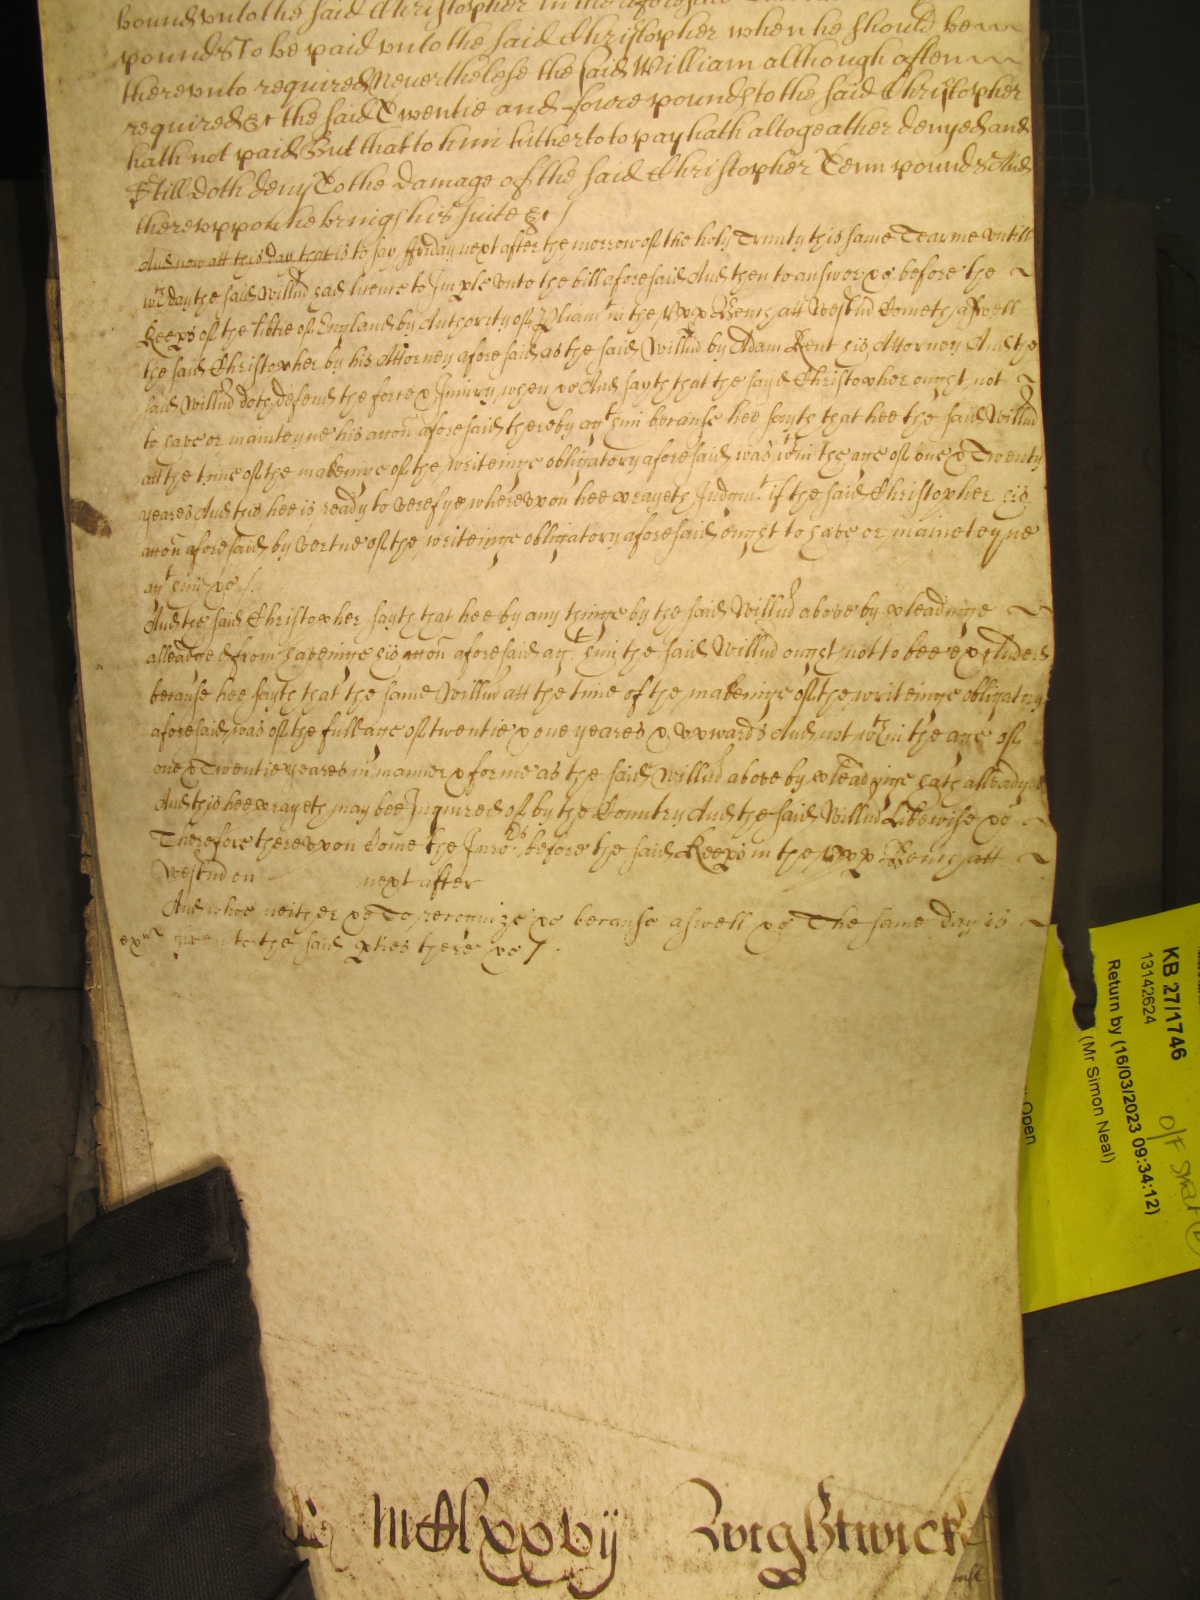 bound unto the said Christopher in the aforesaid
pounds to be paid unto the said Christopher when he should bee
thereunto required Neverthelesse the said William although often
required &c the said Twentie and foure pounds to the said Christopher
hath not paid But that to him hitherto to pay hath altogeather denyed and
Still doth deny To the Damage of the said Christopher Tenn pounds And
thereuppon he brings his suite &c /
And now att this day that is to say ffriday next after the morrow of the holy Trinity this same Tearme untill
wch day the said Willm had licence to Imple unto the bill aforesaid And then to answer &c before the
Keeps of the libtie of England by Authority of Pliamt in the Upp Bench att Westm Cometh aswell
the said Christopher by his Attorney aforesaid as the said Willm by Adam Kent his Attorney And the
said Willm doth defend the force & Iniury when &c And sayth that the said Christopher ought not
to have or mainteyne his accon aforesaid thereby agt him because hee sayth that hee the said Willm
att the time of the makeinge of the writeinge obligatory aforesaid was wthin the age of one & Twenty
yeares And this hee is ready to verefye whereupon hee prayeth Judgmt if the said Christopher his
accon aforesaid by vertue of the writeinge obligatory aforesaid ought to have or mainteyne
agt him &c /.
And the said Christopher sayth that hee by any thinge by the said Willm above by pleadinge
alleadged from haveinge his accon aforesaid agt him the said Willm ought not to bee excluded
because hee sayth that the same Willm att the time of the makeinge of the writeinge obligatory
aforesaid was of the full age of twentie & one yeares & upwards And not wthin the age of
one & Twentie yeares in manner & forme as the said Willm above by pleadinge hath alleadged
And this hee prayeth may bee Inquired of by the Country And the said Willm Likewise &c
Therefore thereupon Come the Jury before the said Keeps in the Upp Bench att
Westm on next after
And whoe neither &c To recognize &c because aswell &c The same day is
given to the said pties there &c /
M CCCC xxvij Wightwick
KB 27/1746
13142624
Return by (16/03/2023 09:34:12)
(Mr Simon Neal)
Open